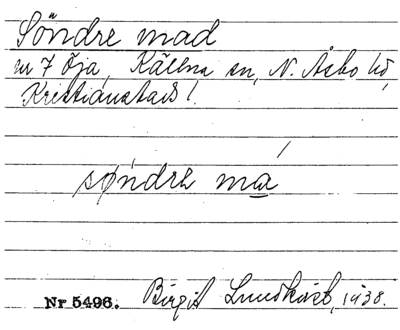 Söndre mad
nr 7 Öja, Källna sn, N. Åsbo hd,
Kristianstads l.
sø̀ndrɛ má
Nr 5496. Birgit Lundkvist, 1938.